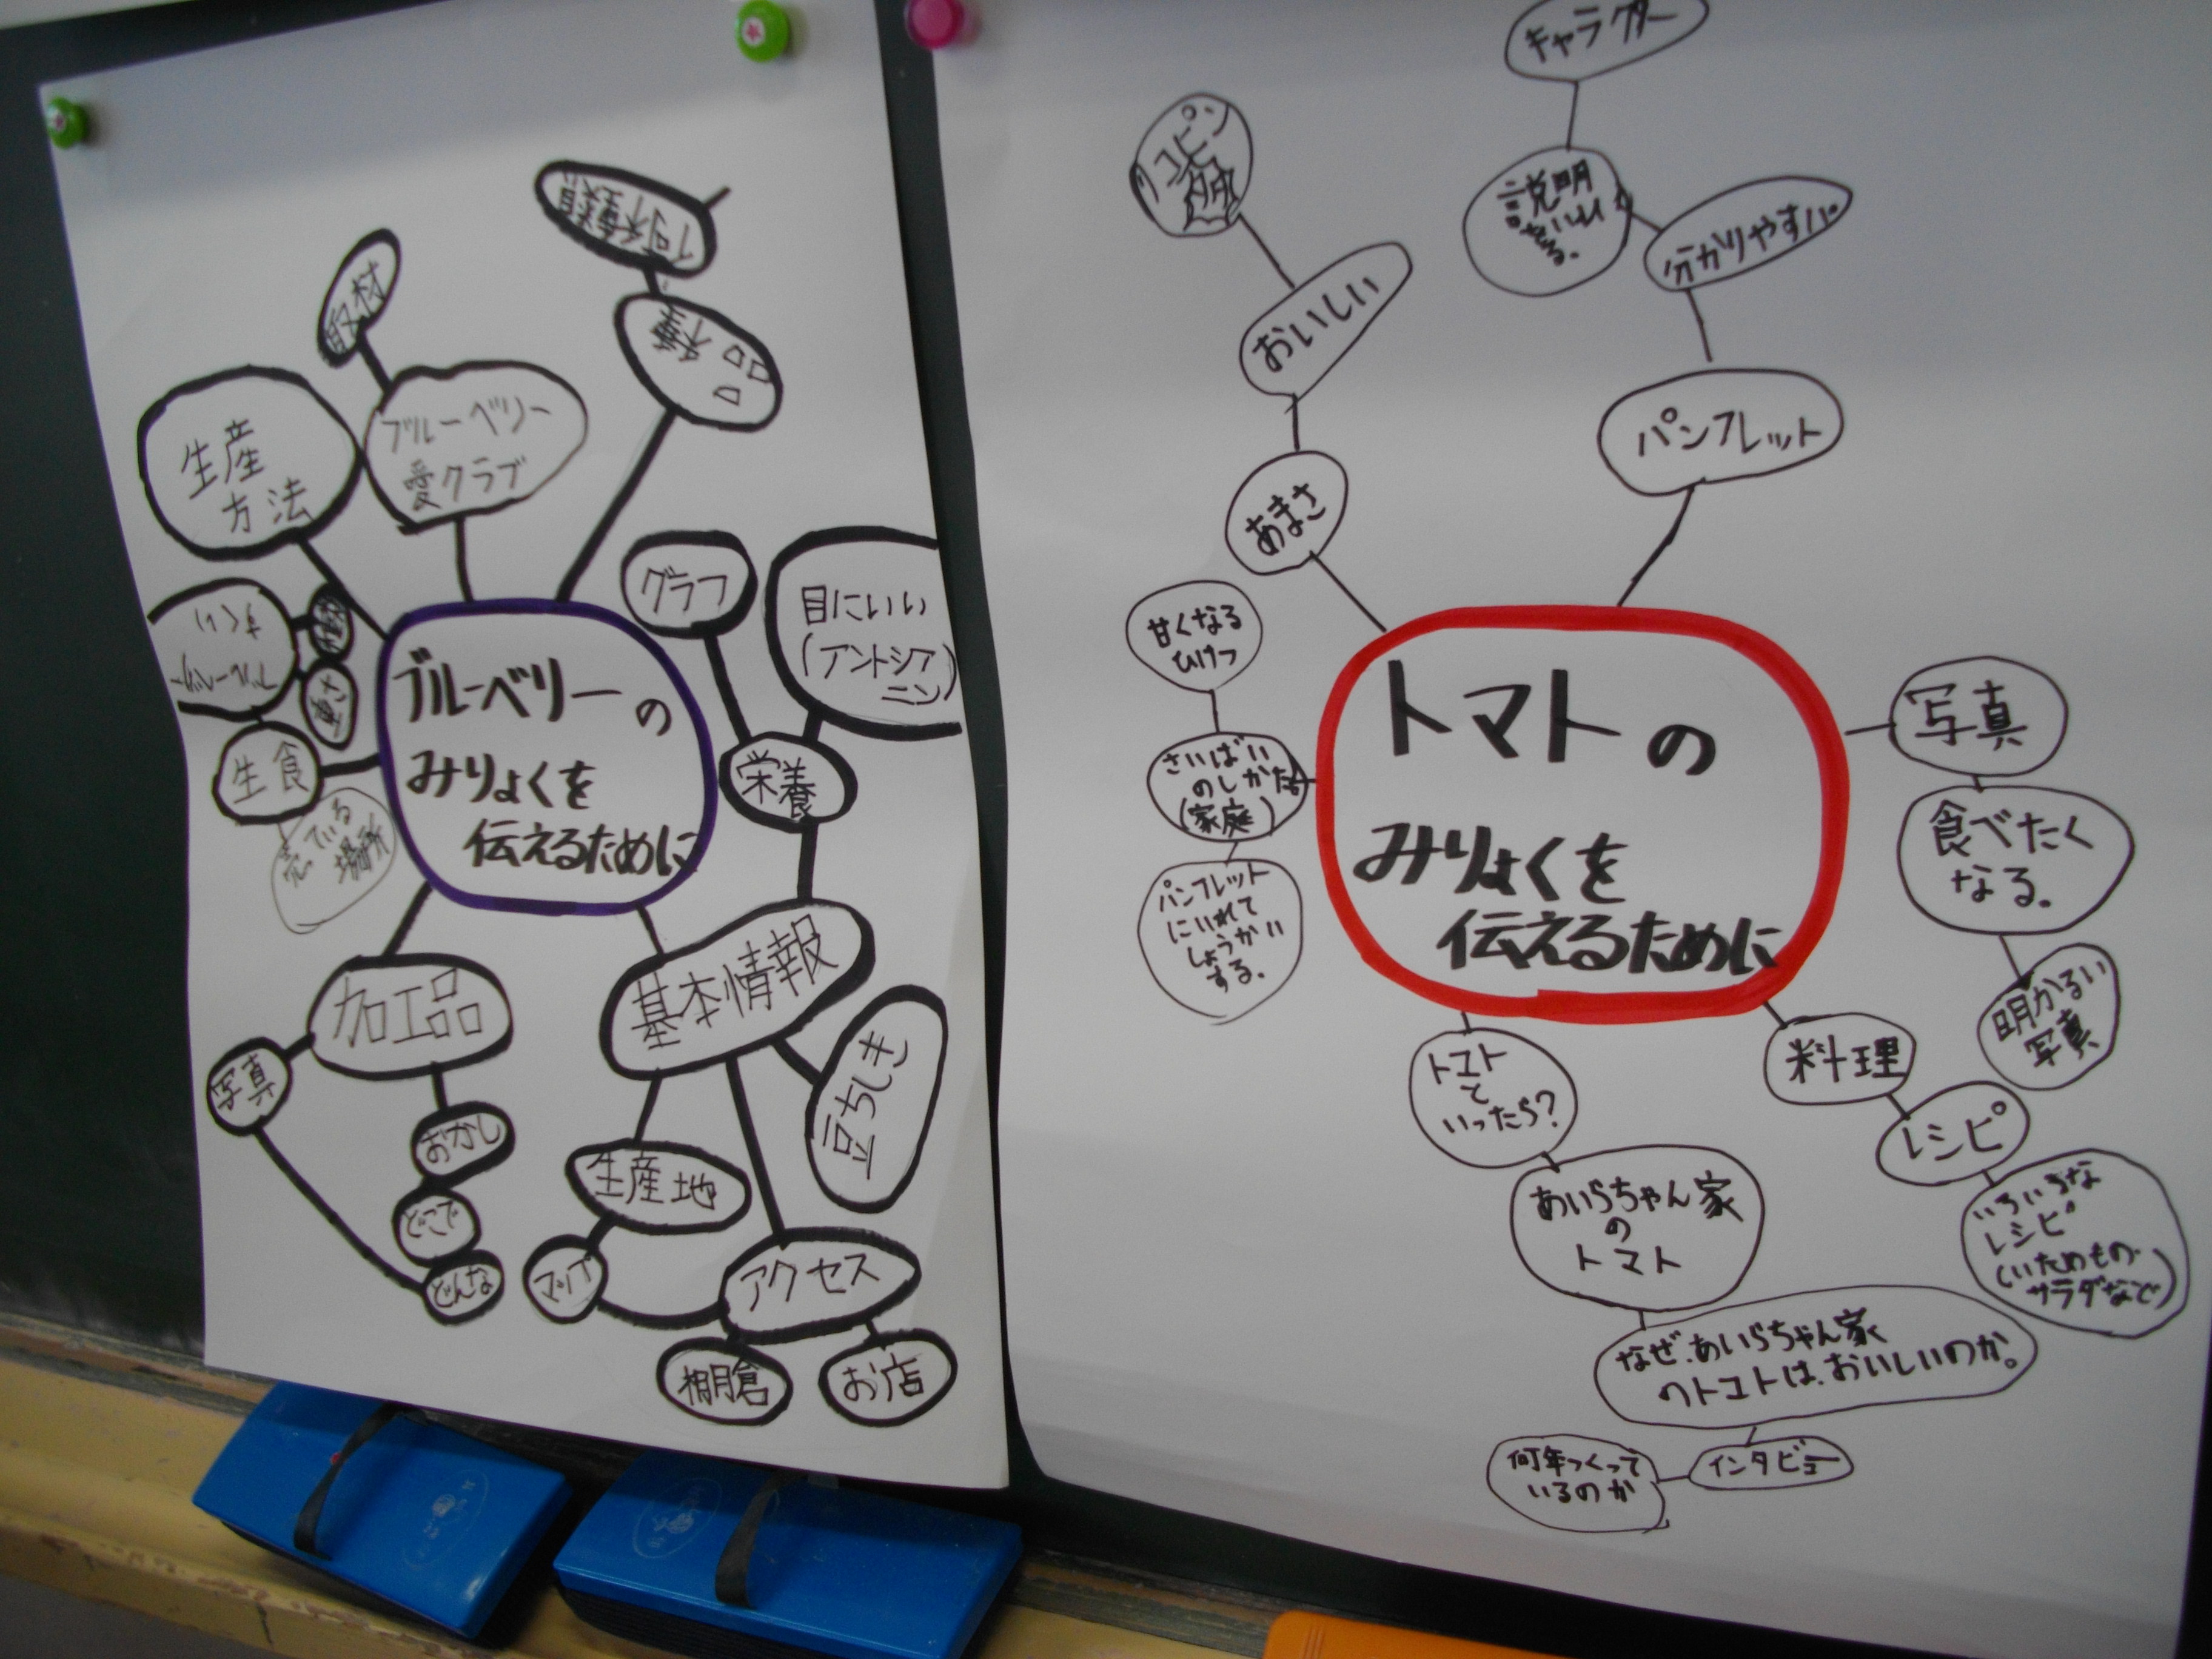 取材
品種
生産
方法
ブルーベリー
愛クラブ
グラフ
目にいい
(アントシア
ニン)
重さ
生食
売っている
場所
ブルーベリーの
みりょくを
伝えるために
栄養
加工品
写真
おかし
どこで
どんな
基本情報
豆ちしき
生産地
マップ
アクセス
棚倉
お店
キャラクター
説明
分かりやすい
パンフレット
おいしい
あまさ
甘くなる
ひけつ
さいばい
のしかた
(家庭)
パンフレット
にいれて
しょうかい
する。
トマトの
みりょくを
伝えるために
写真
食べたく
なる。
明かるい
写真
料理
レシピ
いろいろな
レシピ
(いためもの
サラダなど)
トマト
と
いったら?
あいらちゃん家
の
トマト
なぜ、あいらちゃん家
のトマトは、おいしいのか。
インタビュー
何年つくって
いるのか